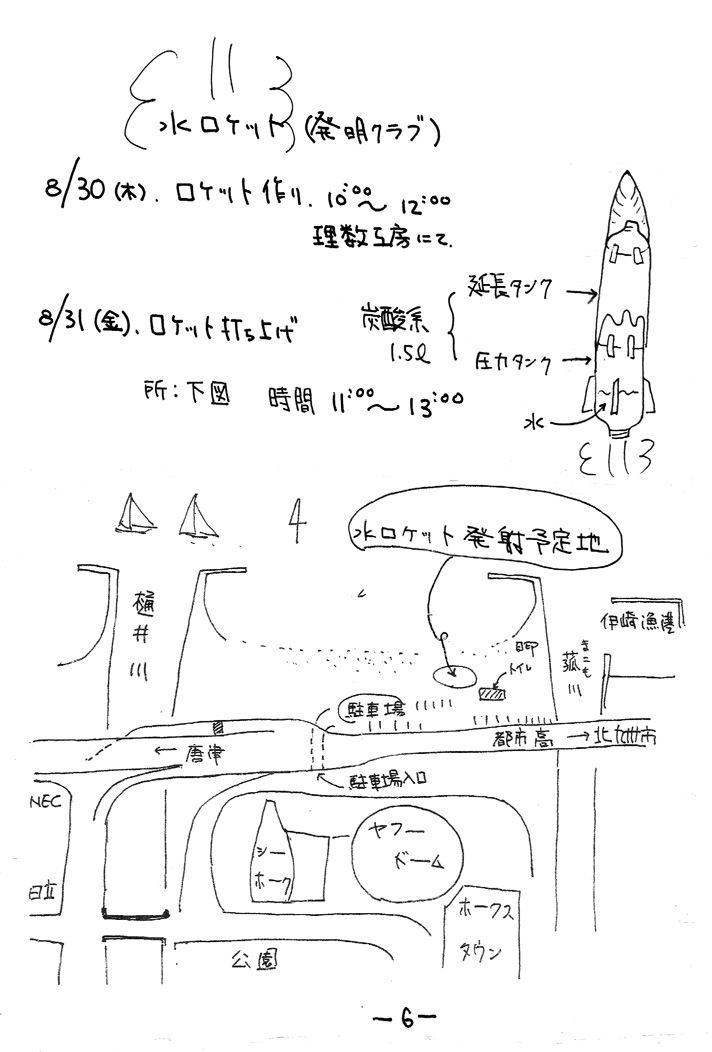 水ロケット (発明クラブ)
8/30(木). ロケット作り. 10:00〜12:00
理数工房にて.
8/31(金). ロケット打ち上げ
所:下図 時間 11:00〜13:00
炭酸系
1.5ℓ
延長タンク
圧力タンク
水
水ロケット発射予定地
樋井川
目印
トイレ
まこも
菰川
伊崎漁港
駐車場
← 唐津
都市高 → 北九州市
駐車場入口
NEC
日立
シーホーク
ヤフードーム
ホークスタウン
公園
-6-